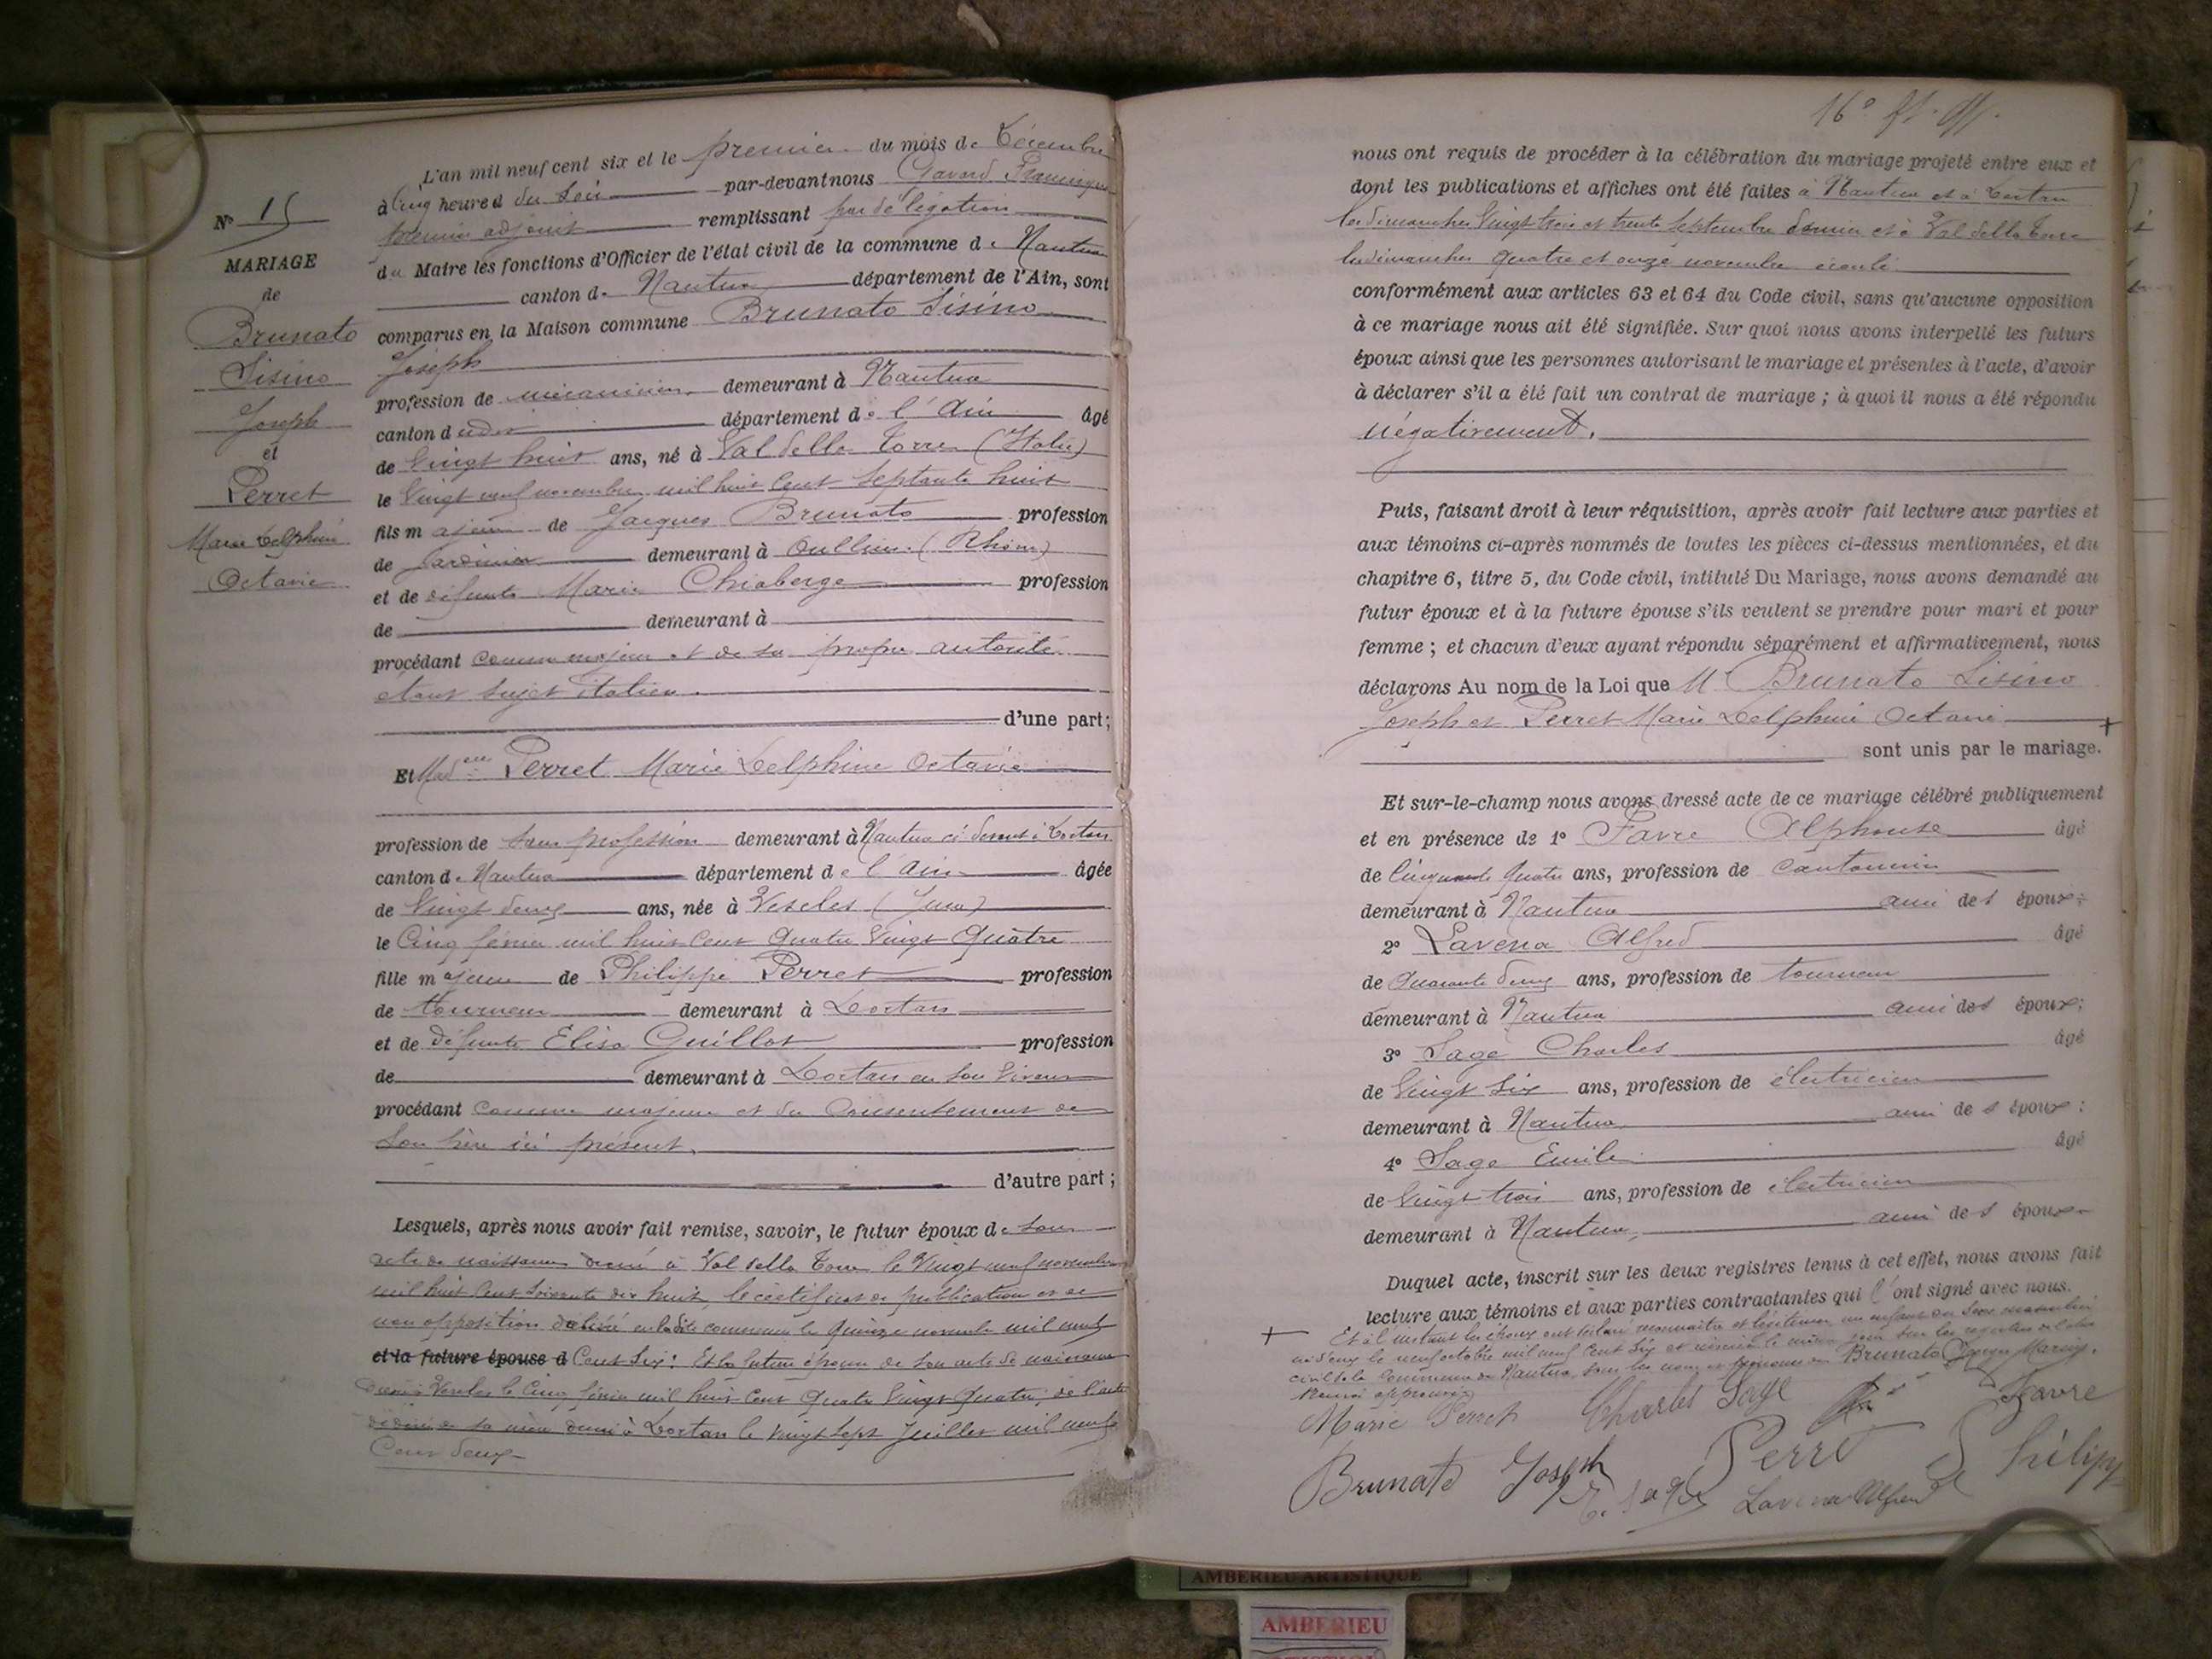 L'an mil neuf cent six et le premier du mois de Décembre
à Cinq heures du Soir par-devant nous Gavard
premier adjoint remplissant par délégation
du Maire les fonctions d'Officier de l'état civil de la commune de Nantua
canton de Nantua département de l'Ain, sont
comparus en la Maison commune Brunato Sisino
Joseph
profession de mécanicien demeurant à Nantua
canton dudit département de l'Ain âgé
de Vingt huit ans, né à Val della Torre (Italie)
le Vingt neuf novembre mil huit Cent septante huit
fils majeur de Jacques Brunato profession
de Jardinier demeurant à Oullins (Rhône)
et de défunte Marie Chiaberge profession
de demeurant à
procédant comme majeur et de sa propre autorité
étant sujet italien.
d'une part;
Et Madelle Perret Marie Delphine Octavie
profession de sans profession demeurant à Nantua ci-devant à Dortan
canton de Nantua département de l'Ain âgée
de Vingt deux ans, née à Vescles (Jura)
le Cinq février mil huit Cent Quatre Vingt Quatre
fille majeure de Philippe Perret profession
de tourneur demeurant à Dortan
et de défunte Elisa Guillot profession
de demeurant à Dortan en son Vivant
procédant comme majeure et du Consentement de
Son père ici présent.
d'autre part;
Lesquels, après nous avoir fait remise, savoir, le futur époux de son
acte de naissance dressé à Val della Torre le Vingt neuf novembre
mil huit Cent Soixante dix huit, le certificat de publication et de
non opposition délivré en ladite commune le Quinze novembre mil neuf
et la future épouse d Cent Six: Et la future épouse de son acte de naissance
dressé à Vescles le Cinq février mil huit Cent Quatre Vingt Quatre; de l'acte
de décès de sa mère dressé à Dortan le Vingt sept Juillet mil neuf
Cent deux
Nº 15
MARIAGE
de
Brunato
Sisino
Joseph
et
Perret
Marie Delphine
Octavie
16e
nous ont requis de procéder à la célébration du mariage projeté entre eux et
dont les publications et affiches ont été faites à Nantua et à Dortan
les dimanches Vingt trois et trente Septembre dernier et à Val della Torre
les dimanches Quatre et onze novembre écoulé
conformément aux articles 63 et 64 du Code civil, sans qu'aucune opposition
à ce mariage nous ait été signifiée. Sur quoi nous avons interpellé les futurs
époux ainsi que les personnes autorisant le mariage et présentes à l'acte, d'avoir
à déclarer s'il a été fait un contrat de mariage; à quoi il nous a été répondu
négativement.
Puis, faisant droit à leur réquisition, après avoir fait lecture aux parties et
aux témoins ci-après nommés de toutes les pièces ci-dessus mentionnées, et du
chapitre 6, titre 5, du Code civil, intitulé Du Mariage, nous avons demandé au
futur époux et à la future épouse s'ils veulent se prendre pour mari et pour
femme; et chacun d'eux ayant répondu séparément et affirmativement, nous
déclarons Au nom de la Loi que M Brunato Sisino
Joseph et Perret Marie Delphine Octavie +
sont unis par le mariage.
Et sur-le-champ nous avons dressé acte de ce mariage célébré publiquement
et en présence de 1º Favre Alphonse âgé
de Cinquante Quatre ans, profession de cantonnier
demeurant à Nantua ami des époux;
2º Lavena Alfred âgé
de Quarante deux ans, profession de tourneur
demeurant à Nantua ami des époux;
3º Sage Charles âgé
de Vingt Six ans, profession de électricien
demeurant à Nantua ami des époux;
4º Sage Emile âgé
de Vingt trois ans, profession de électricien
demeurant à Nantua ami des époux
Duquel acte, inscrit sur les deux registres tenus à cet effet, nous avons fait
lecture aux témoins et aux parties contractantes qui l'ont signé avec nous.
+ Et à l'instant les époux ont déclaré reconnaître et légitimer un enfant du sexe masculin
né d'eux le neuf octobre mil neuf Cent Six et inscrit le même jour sur les registres de l'état
civil de la Commune de Nantua, sous les noms et prénoms de Brunato
Renvoi approuvé
Marie Perret Charles Sage Favre
Brunato Joseph Perret Philipp
E. Sage Lavena Alfred
AMBERIEU ARTISTIQUE
AMBERIEU
ARTISTIQUE